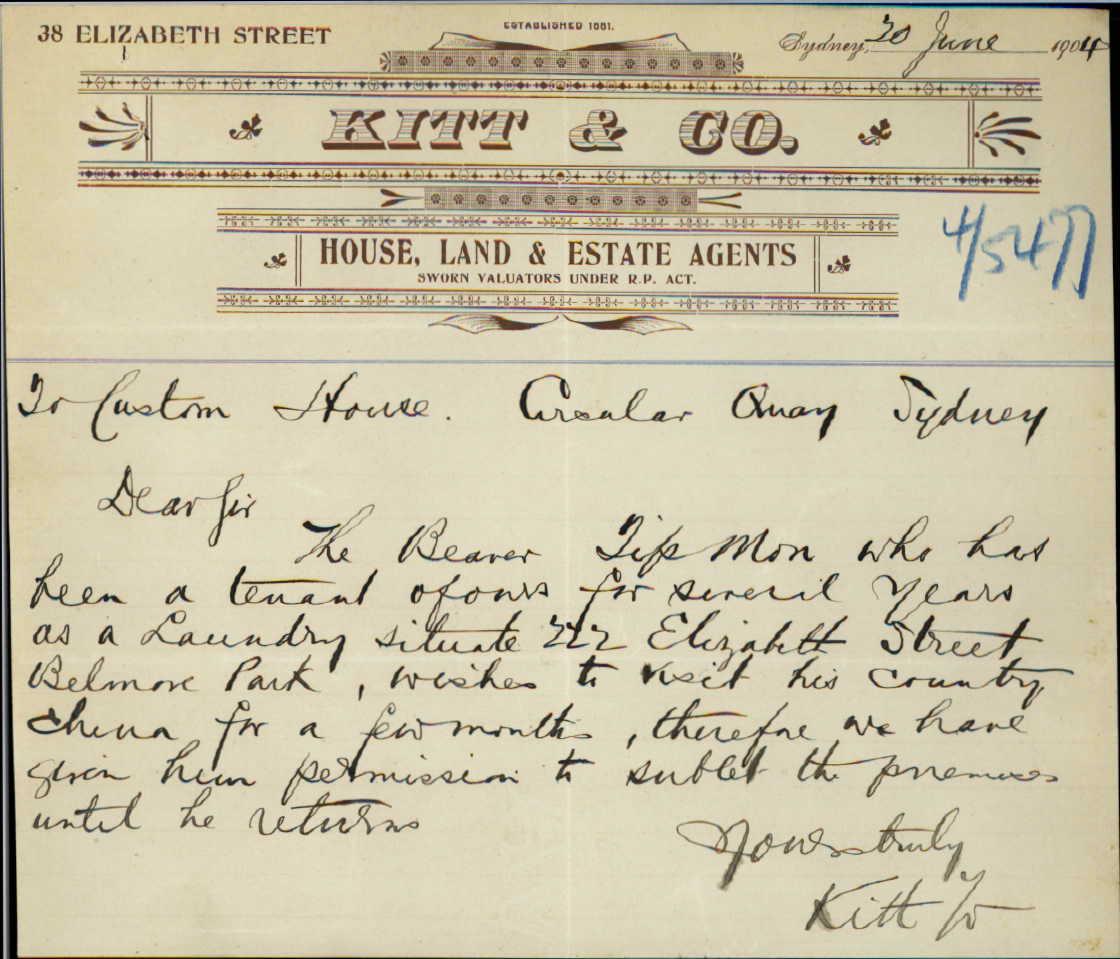 38 ELIZABETH STREET
ESTABLISHED 1881.
Sydney, 20 June 1904
KITT & CO.
HOUSE, LAND & ESTATE AGENTS
SWORN VALUATORS UNDER R.P. ACT.
4/5477
To Custom House. Circular Quay Sydney
Dear Sir
The Bearer Mon who has
been a tenant of ours for several years
as a Laundry situate 222 Elizabeth Street
Belmore Park, wishes to visit his country
China for a few months, therefore we have
given him permission to sublet the premises
until he returns
Yours truly
Kitt & Co